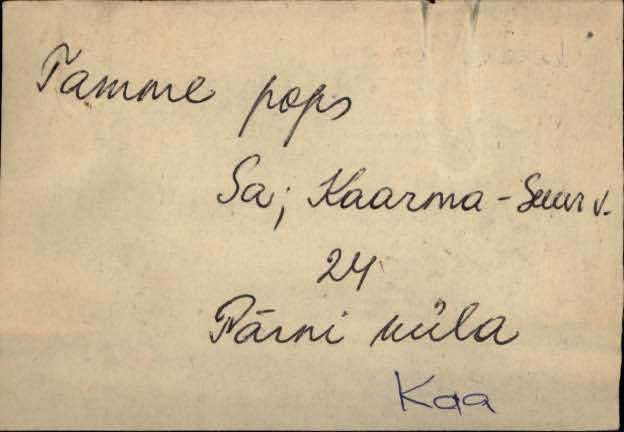 Tamme pops
Sa; Kaarma-Suur v.
24
Pärni küla
Kaa